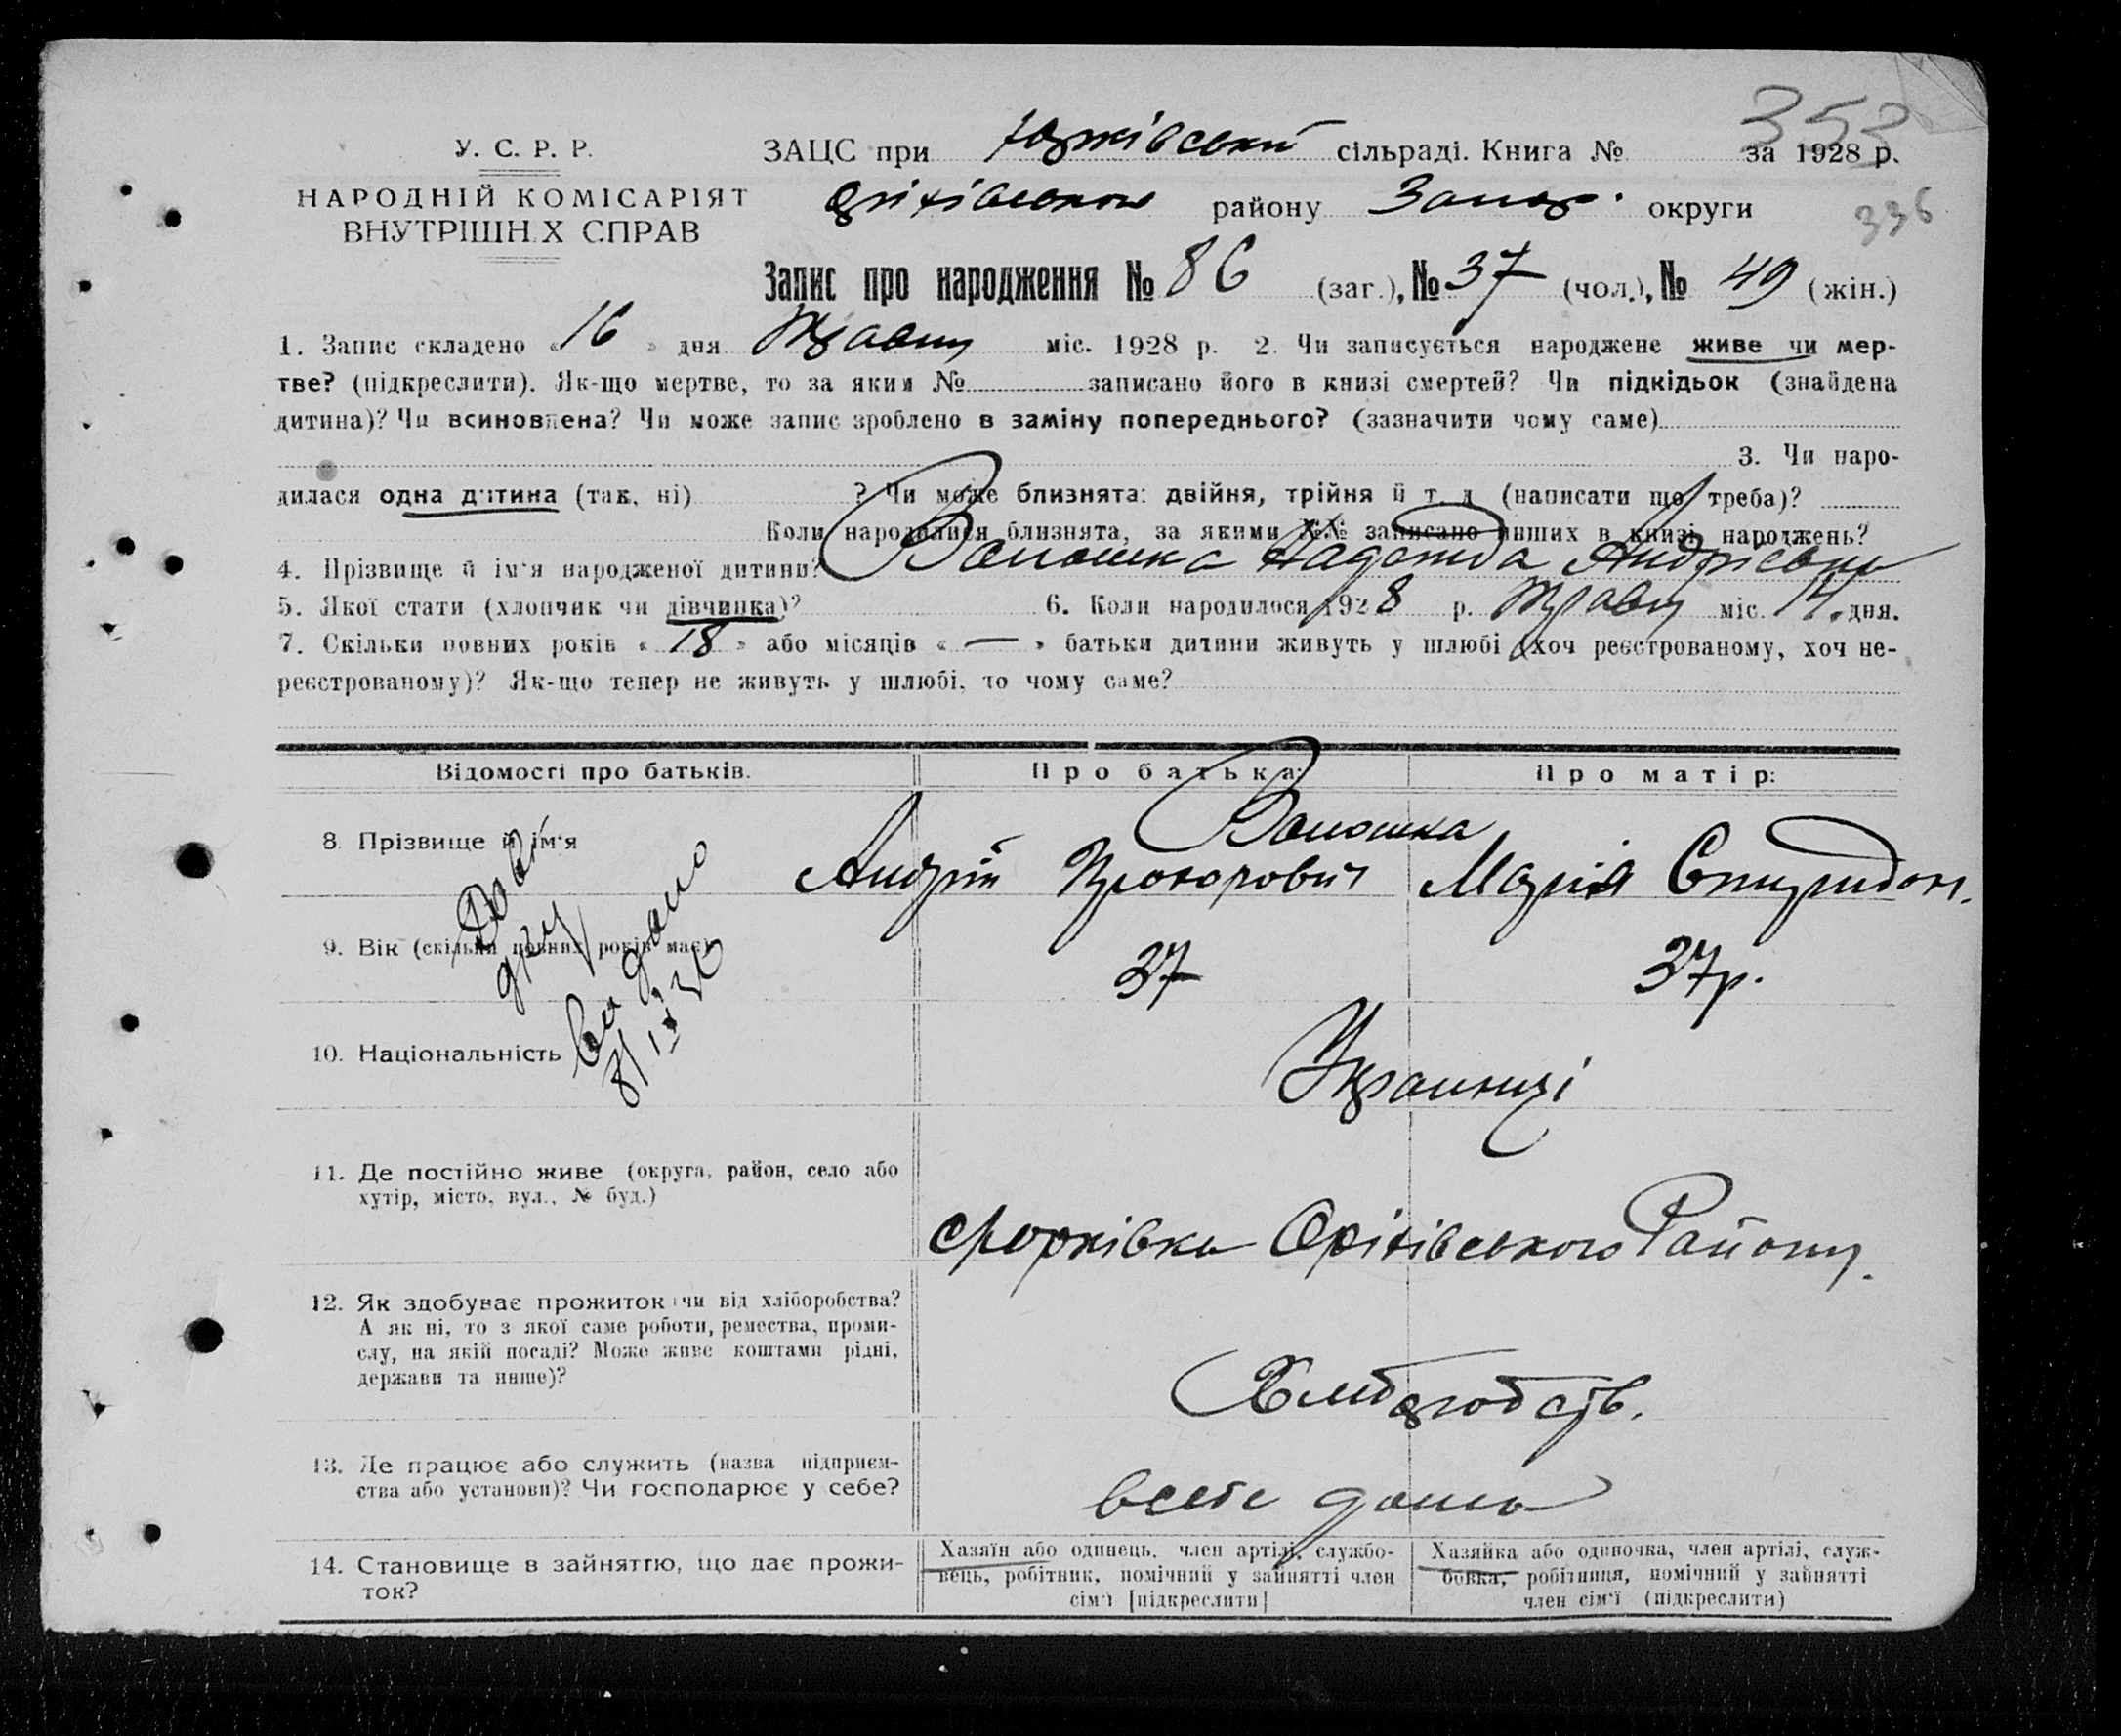 353
У. С. Р. Р.
НАРОДНІЙ КОМІСАРІЯТ
ВНУТРІШН.Х СПРАВ
ЗАЦС при Юрківській сільраді. Книга № за 1928 р.
Оріхівського району Запор. округи
336
Запис про народження № 86 (заг.), № 37 (чол.), № 49 (жін.)
1. Запис складено « 16 » дня Травня міс. 1928 р. 2. Чи записується народжене живе чи мер-
тве? (підкреслити). Як-що мертве, то за яким № записано його в книзі смертей? Чи підкідьок (знайдена
дитина)? Чи всиновлена? Чи може запис зроблено в заміну попереднього? (зазначити чому саме)
3. Чи наро-
дилася одна дитина (так, ні) ? Чи може близнята: двійня, трійня й т. д (написати що треба)?
Коли народилися близнята, за якими №№ записано инших в книзі народжень?
4. Прізвище й ім'я народженої дитини? Волошка Надежда Андріевна
5. Якої стати (хлопчик чи дівчинка)? 6. Коли народилося 1928 р. Травня міс. 14. дня.
7. Скільки повних років « 18 » або місяців « — » батьки дитини живуть у шлюбі (хоч реєстрованому, хоч не-
реєстрованому)? Як-що тепер не живуть у шлюбі, то чому саме?
Відомості про батьків.
Про батька:
Про матір:
8. Прізвище й ім'я
Волошка
Андрій Прохорович
Марія Спиридон.
9. Вік (скільки повних років має)
37
37р.
видано
10. Національність
Украинці
11. Де постійно живе (округа, район, село або
хутір, місто, вул., № буд.)
Оріхівського Району.
12. Як здобуває прожиток (чи від хліборобства?
А як ні, то з якої саме роботи, ремества, проми-
слу, на якій посаді? Може живе коштами рідні,
держави та инше)?
Хлиборобств.
13. Де працює або служить (назва підприєм-
ства або установи)? Чи господарює у себе?
всебе дома
14. Становище в зайняттю, що дає прожи-
ток?
Хазяїн або одинець, член артілі, службо-
вець, робітник, помічний у зайнятті член
сім'ї [підкреслити]
Хазяйка або одиночка, член артілі, служ-
бовка, робітниця, помічний у зайнятті
член сім'ї (підкреслити)